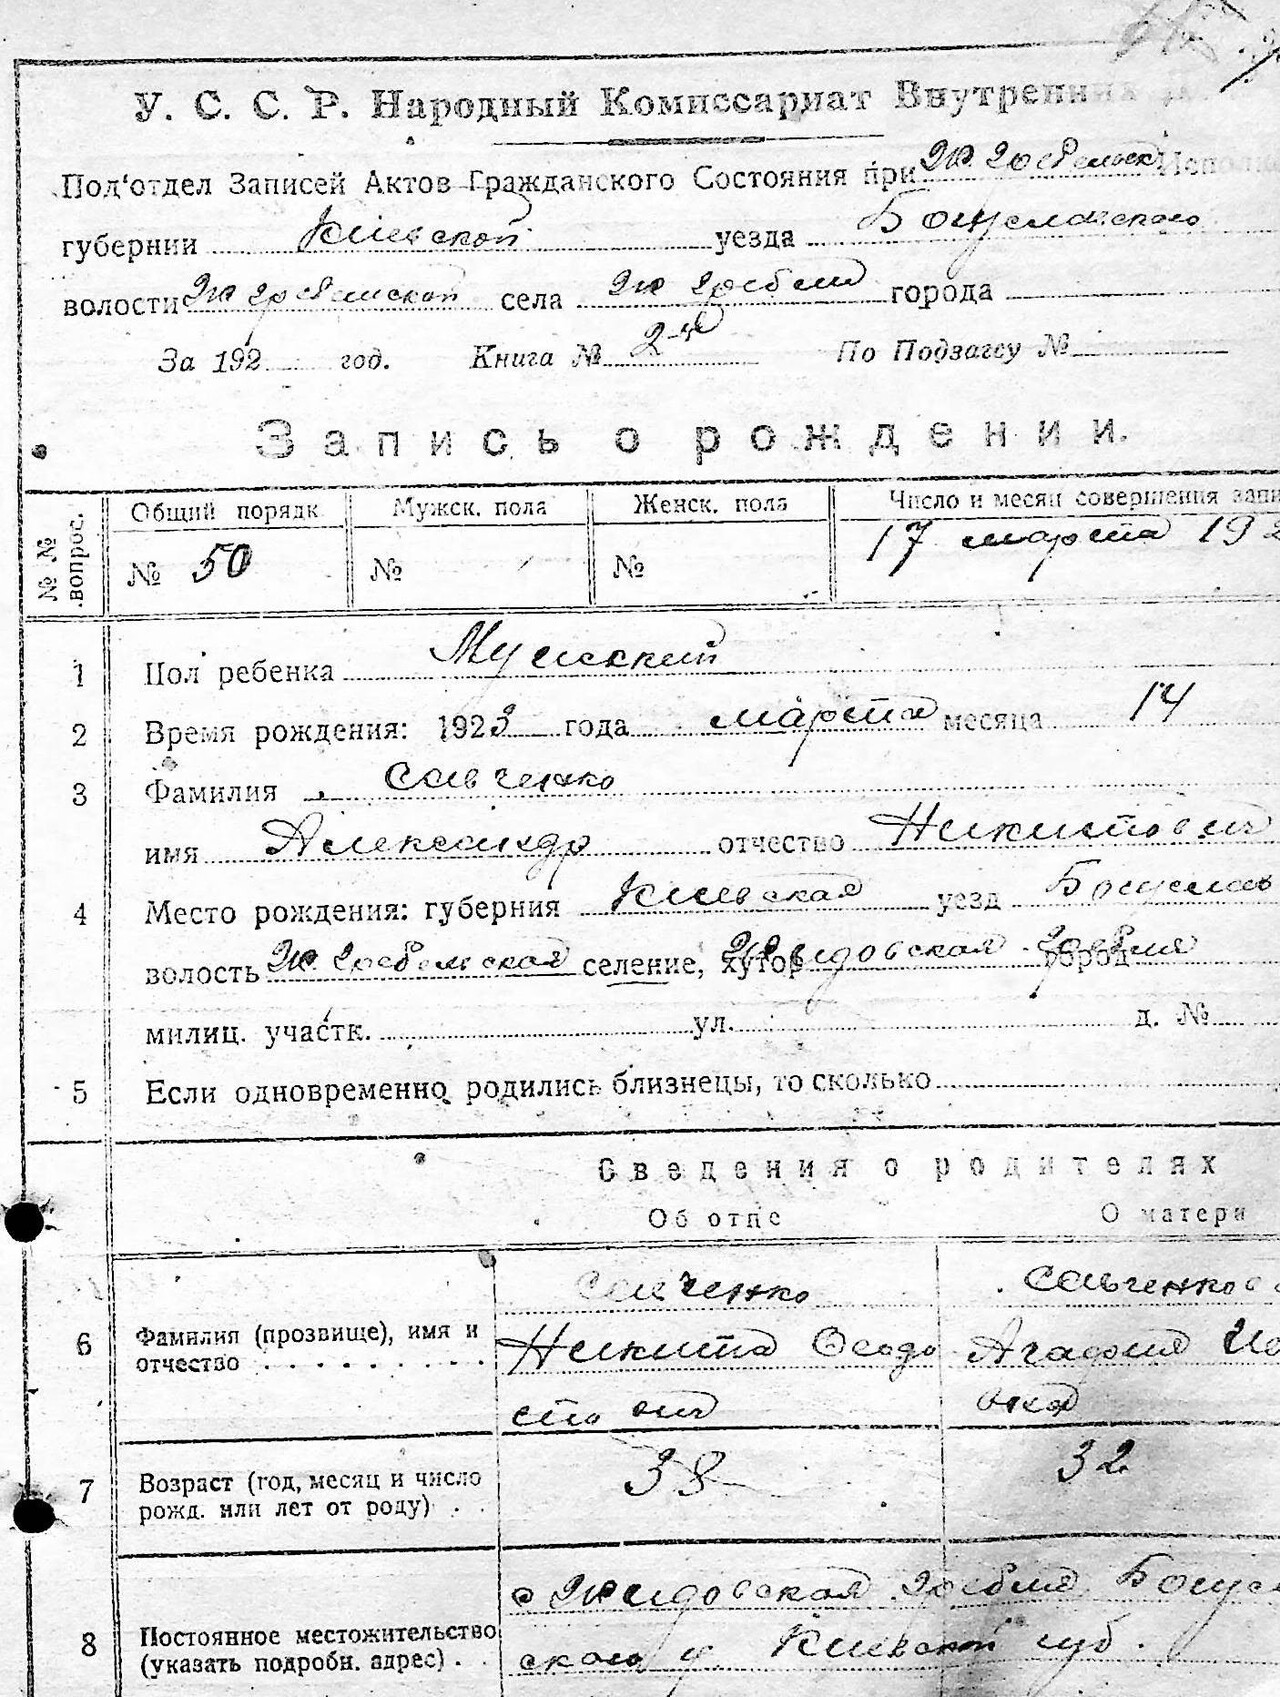 У. С. С. Р. Народный Комиссариат Внутренних
Под'отдел Записей Актов Гражданского Состояния при Ж. Гребельск.
губернии Киевской уезда Богуславского
волости Ж Гребельской села Ж Гребли города
За 192 год. Книга № 2-я По Подзагсу №
Запись о рождении.
№ № вопрос. Общий порядк. Мужск. пола Женск. пола Число и месяц совершения запи
№ 50 № № 17 марта 192
1 Пол ребенка Мужской
2 Время рождения: 1923 года марта месяца 14
3 Фамилия Савченко
имя Александр отчество Никитович
4 Место рождения: губерния Киевская уезд Богуслав
волость Ж. Гребельская селение, хутор Жидовская Гребля город
милиц. участк. ул. д. №
5 Если одновременно родились близнецы, то сколько
Сведения о родителях
Об отце О матери
Савченко Савченкова
6 Фамилия (прозвище), имя и Никита Феодо Агафия
отчество
вна
7 Возраст (год, месяц и число 38 32
рожд. или лет от роду)
с Жидовская Гребля Богусл
8 Постоянное местожительство ского у Киевской губ.
(указать подробн. адрес)